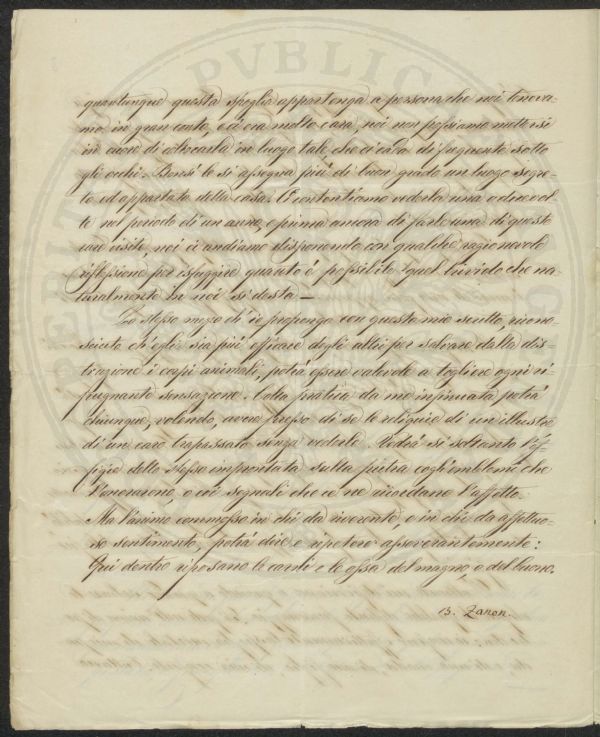 quantunque questa spoglia appartenga a persona che noi tenova-
mo in gran conto, e ci era molto cara, noi non possiamo metterci
in cuore di collocarla in luogo tale che ci cada di frequente sotto
gli occhi. Bensì le si assegna più di buon grado un luogo segre-
to ed appartato della casa. Ci contentiamo vederla una o due vol-
te nel periodo di un anno, e prima ancora di farle una di queste
rare visite, noi ci andiamo disponendo con qualche ragionevole
riflessione per isfuggire quanto è possibile quel brivido che na-
turalmente in noi si desta —
Lo stesso mezzo ch'io propongo con questo mio scritto, ricono-
sciuto ch'egli sia più efficace degli altri per salvare dalla dis-
truzione i corpi animali, potrà essere valevole a togliere ogni ri-
pugnante sensazione. Colla pratica da me insinuata potrà
chiunque, volendo, avere presso di sè le reliquie di un illustre
di un caro trapassato senza vederle. Vedrà sì soltanto l'ef-
figie dello stesso improntata sulla pietra cogl'emblemi che
l'onorarono, o coi segnali che ce ne ricordano l'affetto.
Ma l'animo commosso in chi da riverente, e in chi da affettuo-
so sentimento, potrà dire e ripetere asseverantemente:
Qui dentro riposano le carni e le ossa del magno, o del buono.
B. Zanon.
PVBLIC